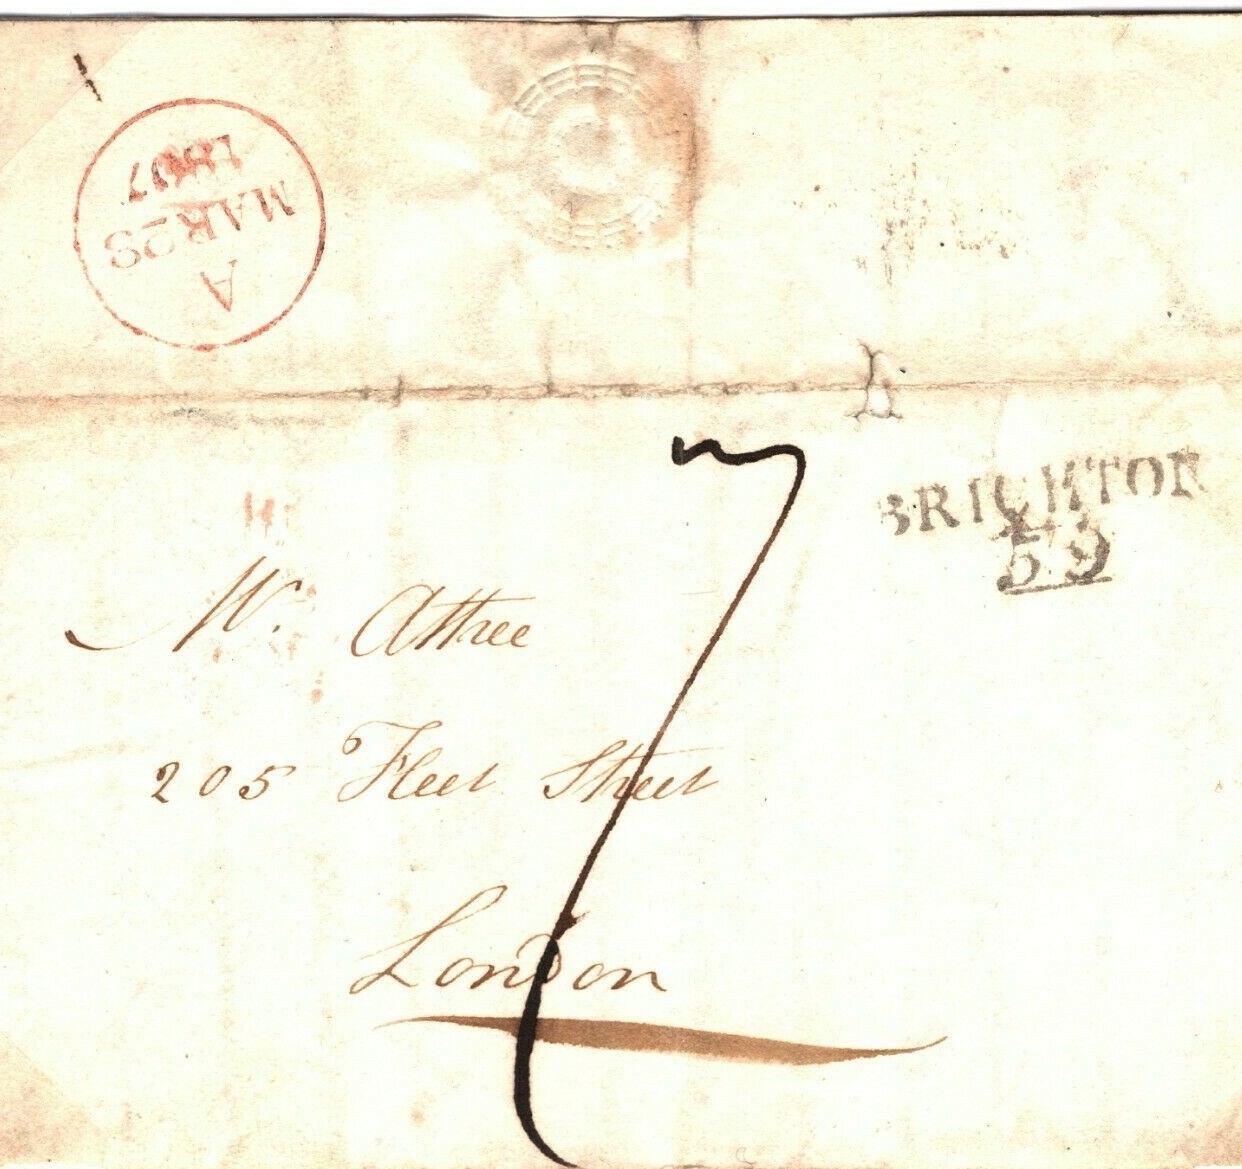 A
MAR 28
1807
BRIGHTON
55
7
Mr. Attree
205 Fleet Street
London